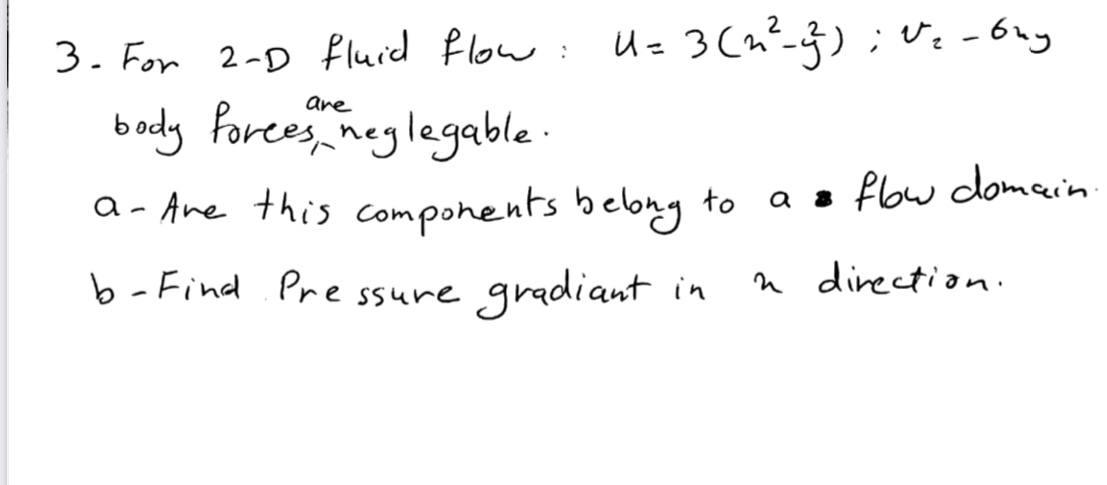 3- For 2-D fluid flow : u = 3(x²-y²) ; v = -6xy
body forces are neglegable.
a- Are this components belong to a flow domain.
b- Find Pressure gradiant in x direction.